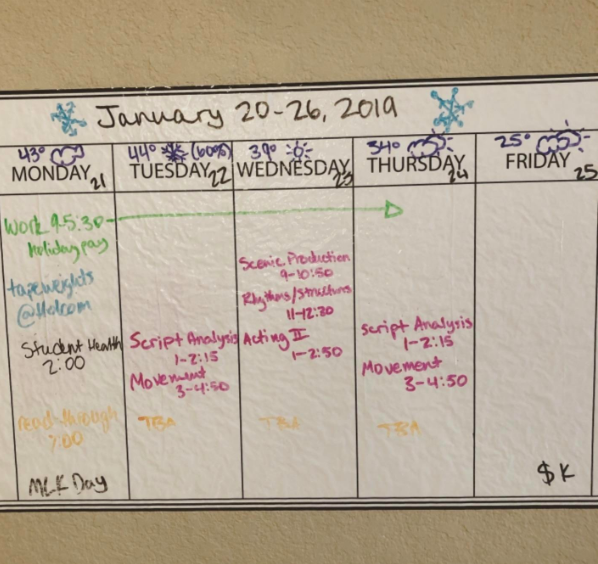 January 20-26, 2019
43°
MONDAY 21
Work 9-5:30
Holiday pay
tapeweights
Student Health
2:00
read-through
7:00
MLK Day
44° (60%)
TUESDAY 22
Script Analysis
1-2:15
Movement
3-4:50
TBA
39°
WEDNESDAY 23
Scenic Production
9-10:50
Rhythms/Structures
11-12:20
Acting II
1-2:50
TBA
34°
THURSDAY 24
Script Analysis
1-2:15
Movement
3-4:50
TBA
25°
FRIDAY 25
$K